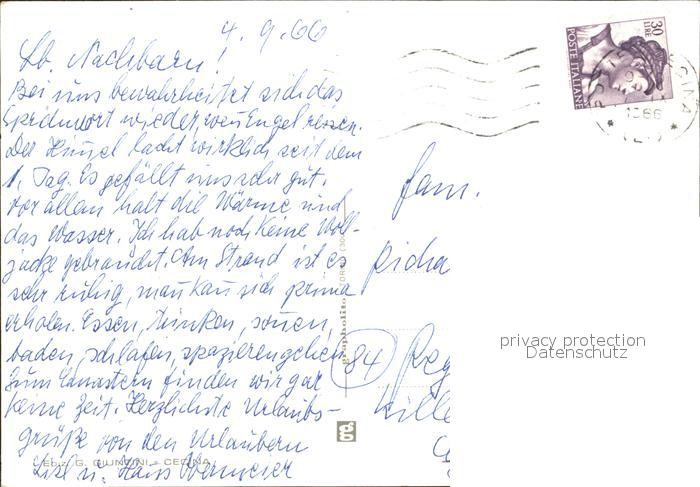 4.9.66
Lb. Nachbarn!
Bei uns bewahrheitet sich das
Sprichwort wieder, wenn Engel reisen.
Der Himmel lacht wirklich seit dem
1. Tag. Es gefällt uns sehr gut.
vor allem halt die Wärme und
das Wasser. Ich hab noch keine Woll-
jacke gebraucht. Am Strand ist es
sehr ruhig, man kan sich prima
erholen. Essen, Trinken, sonnen,
baden, schlafen, spazierengehen
Zum Canastern finden wir gar
keine Zeit. Herzlichste Urlaubs-
grüße von den Urlaubern
Lisl u. Hans
Ediz. G. GIUNTINI - CECINA
grapholito
g
30 LIRE
POSTE ITALIANE
1966
Fam.
Richa
84 Reg
privacy protection
Datenschutz